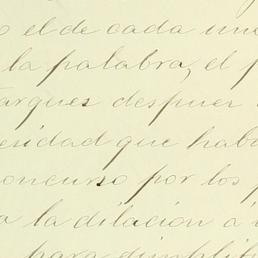 o el de cada uno
la palabra, el p
arques despues
esidad que habi
oncurso por los p
a la dilacion á
para simplifi